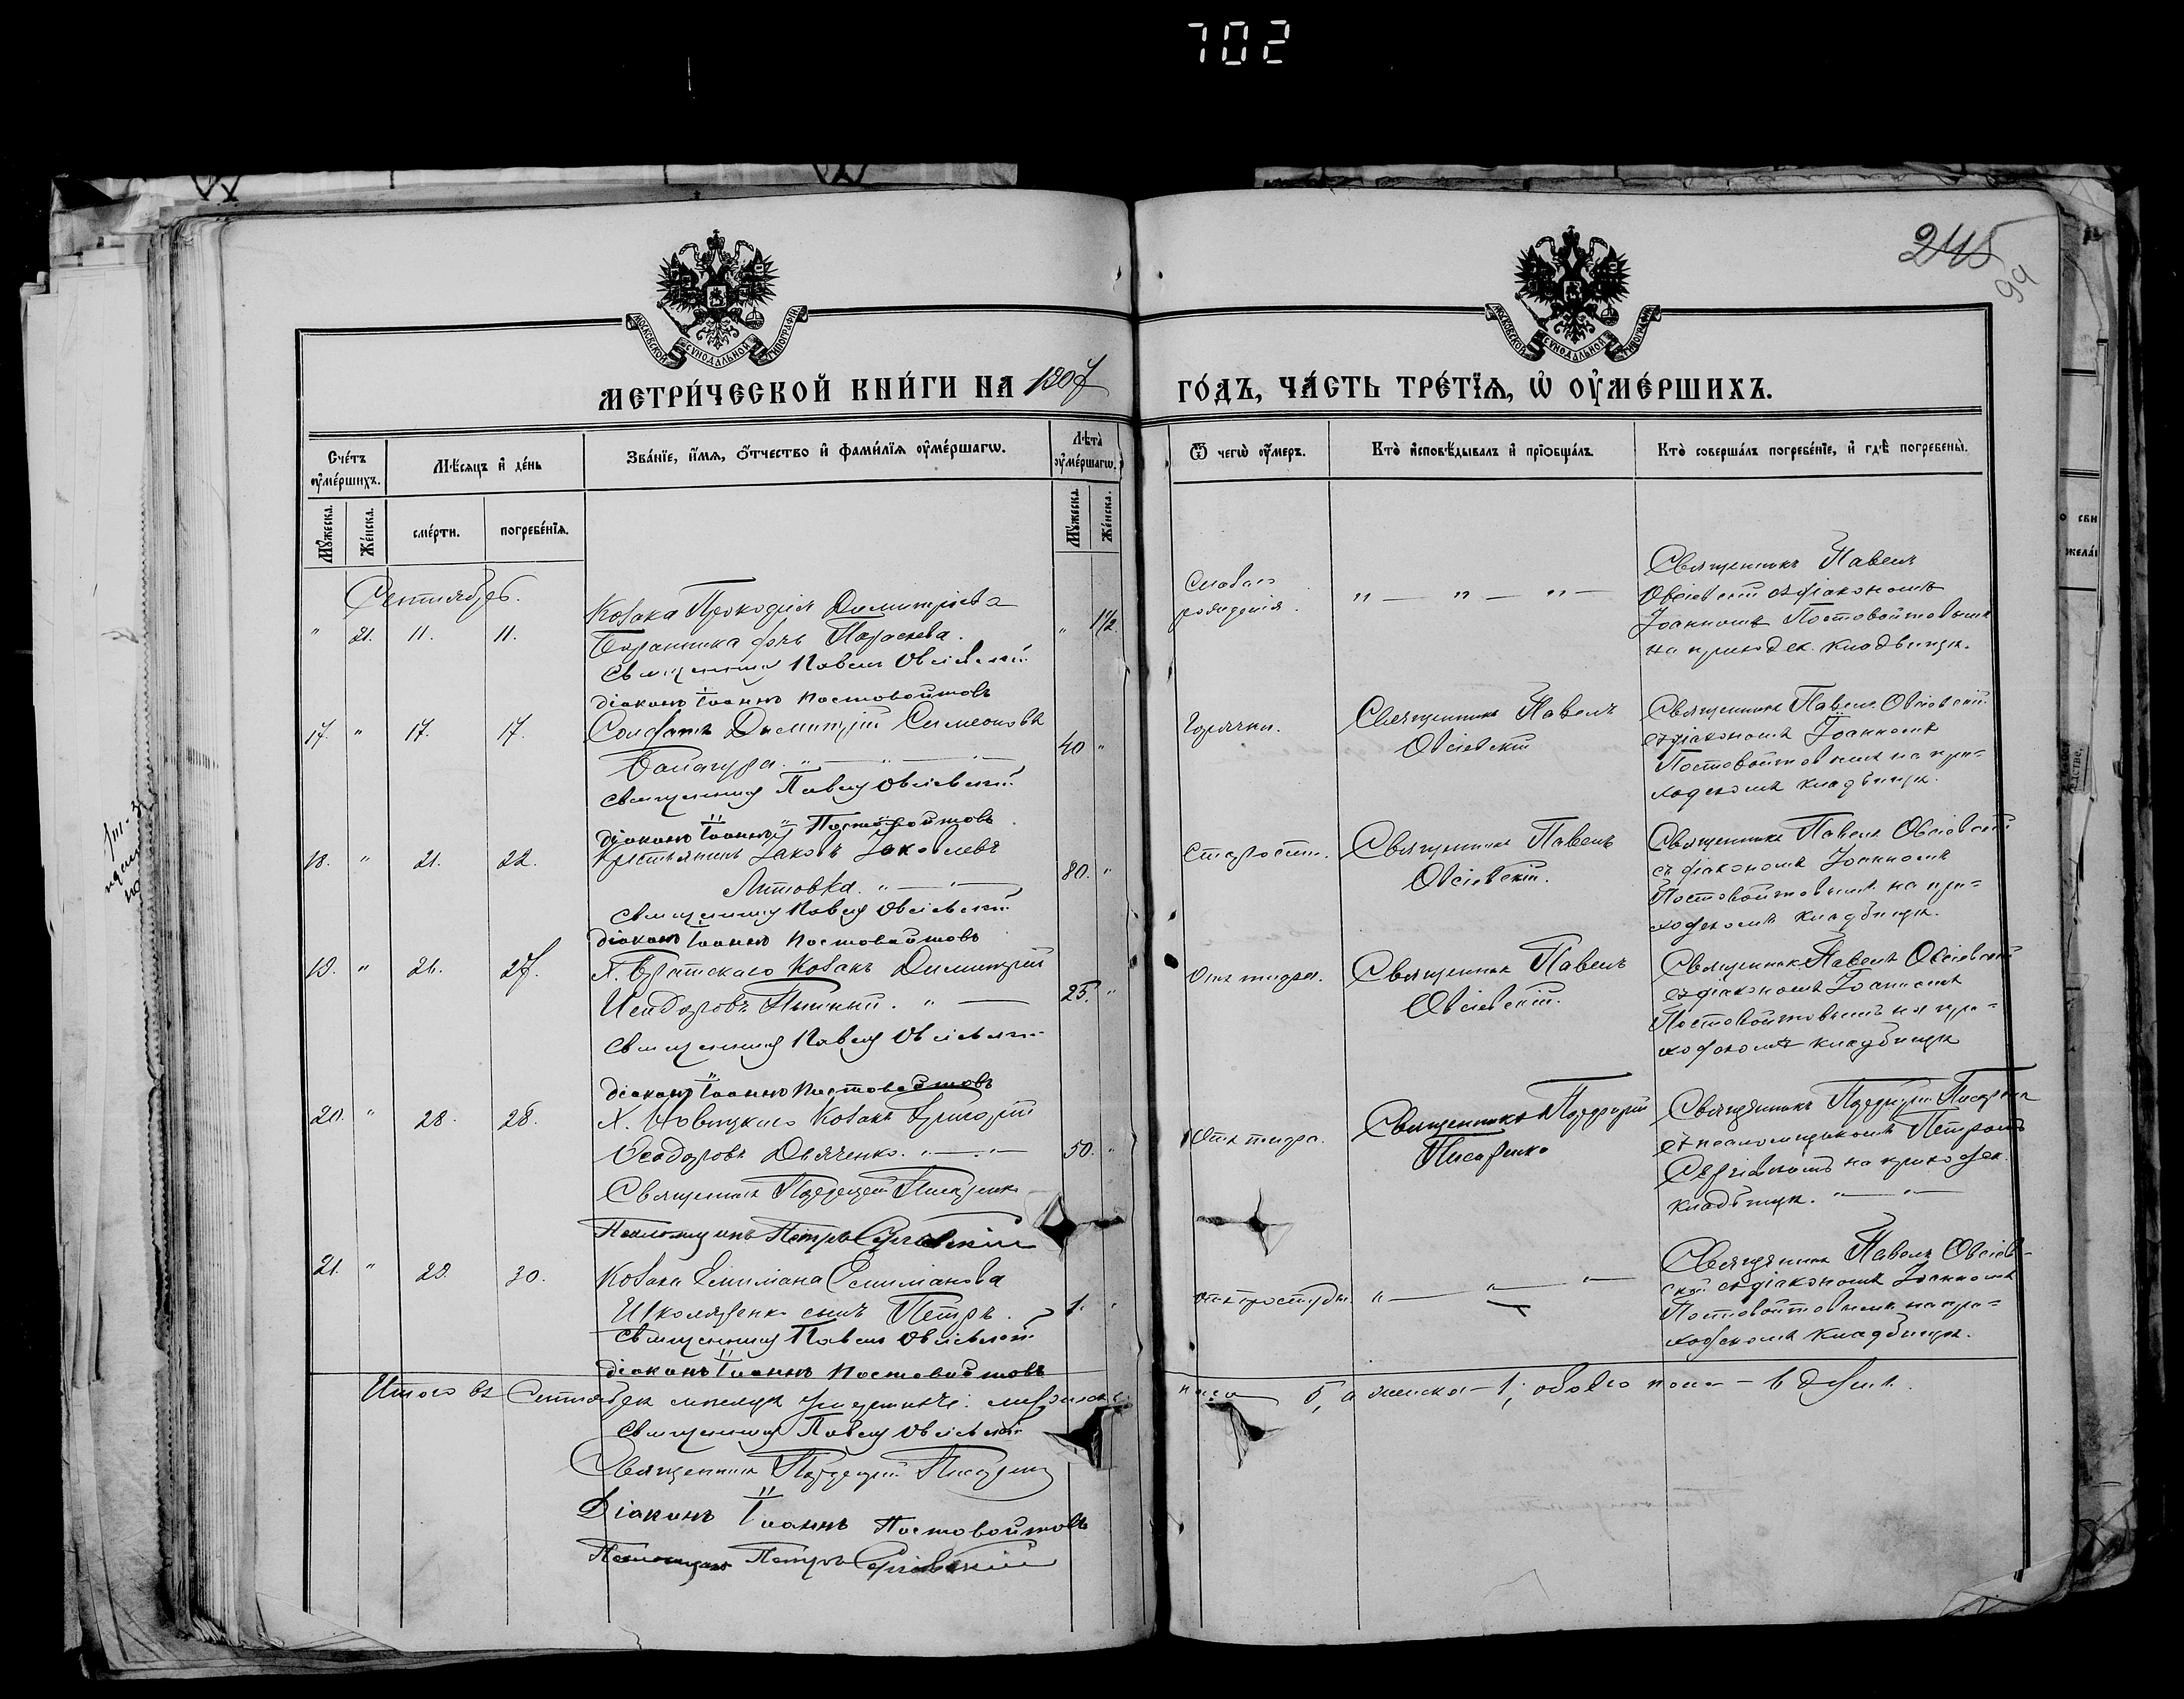 702
245
99
МОСКОВСКОЙ СѴНОДАЛЬНОЙ ТИПОГРАФІИ
МОСКОВСКОЙ СѴНОДАЛЬНОЙ ТИПОГРАФІИ
МЕТРИ́ЧЕСКОЙ КНИ́ГИ НА 1907 ГО́ДЪ, ЧА́СТЬ ТРЕ́ТЇѦ, Ѡ҆ ОУ҆МЕ́РШИХЪ.
Сче́тъ оу҆ме́ршихъ.
Мѣ́сѧцъ и҆ де́нь
Зва́нїе, и҆́мѧ, ѻ҆́тчество и҆ фами́лїѧ оу҆ме́ршагѡ.
Лѣ̑та̀ оу҆ме́ршагѡ.
Ѿ чегѡ̀ оу҆́меръ.
Кто̀ и҆сповѣ́дывалъ и҆ прїѡбща́лъ.
Кто̀ соверша́лъ погребе́нїе, и҆ гдѣ̀ погребены̀.
Мꙋ́жеска.
Же́нска.
сме́рти.
погребе́нїѧ.
Мꙋ́жеска.
Же́нска.
Сентябрь.
" 21. 11. 11.
Козака Прокофія Димитріева
дочь Параскева. " 1½
Священникъ Павелъ Овсіевскій
Діаконъ Іоаннъ Постовойтовъ
Слабаго
рожденія.
" — " — " —
Священникъ Павелъ
Овсіевскій съ діакономъ
Іоанномъ Постовойтовымъ
на приход ск. кладбищѣ.
17. " 17. 17.
Солдатъ Димитрій Симеоновъ
Балагура. " — " — 40 "
Священникъ Павелъ Овсіевскій
Діаконъ Іоаннъ Постовойтовъ
Горячки.
Священникъ Павелъ
Овсіевскій
Священникъ Павелъ Овсіевскій
съ діакономъ Іоанномъ
Постовойтовымъ на при-
ходскомъ кладбищѣ.
18. " 21. 22.
Крестьянинъ Іаковъ Іаковлевъ
Литовка. " — " — 80. "
Священникъ Павелъ Овсіевскій
Діаконъ Іоаннъ Постовойтовъ
Старости.
Священникъ Павелъ
Овсіевскій.
Священникъ Павелъ Овсіевскій
съ діакономъ Іоанномъ
Постовойтовымъ на при-
ходскомъ кладбищѣ.
19. " 26. 27.
Х. Братскаго Козакъ Димитрій
Исидоровъ " — 25. "
Священникъ Павелъ Овсіевскій
Діаконъ Іоаннъ Постовойтовъ
Отъ тифа.
Священникъ Павелъ
Овсіевскій.
Священникъ Павелъ Овсіевскій
съ діакономъ Іоанномъ
Постовойтовымъ на при-
ходскомъ кладбищѣ
20. " 28. 28.
Х. Новицкаго Козакъ Григорій
Ѳеодоровъ Дяченко. " — " — 50. "
Священникъ Писаренко
Псаломщикъ Петръ Сергіевскій
Отъ тифа.
Священникъ
Писаренко
Священникъ
съ псаломщикомъ Петромъ
Сергіевскимъ на приходск.
кладбищѣ. " — " —
21. " 29. 30.
Козака Емиліана Емиліанова
Школяренко сынъ Петръ. 1. "
Священникъ Павелъ Овсіевскій
Діаконъ Іоаннъ Постовойтовъ
Отъ простуды.
" — " — "
Священникъ Павелъ Овсіев-
скій съ діакономъ Іоанномъ
Постовойтовымъ на при-
ходскомъ кладбищѣ.
Итого въ Сентябрѣ мѣсяцѣ умершихъ: мужеска пола 5, а женска — 1; обоего пола — 6 душъ.
Священникъ Павелъ Овсіевскій
Священникъ Писаренко
Діаконъ Іоаннъ Постовойтовъ
Псаломщикъ Петръ Сергіевскій